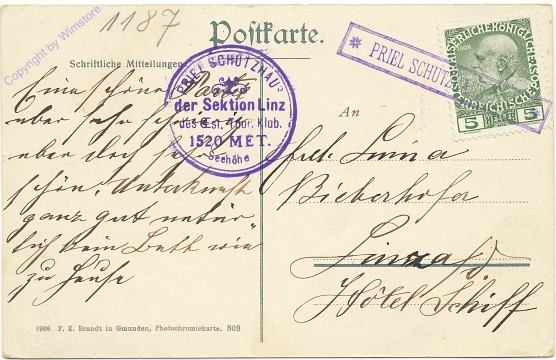 Copyright by Wimstore
1187
Postkarte.
Schriftliche Mitteilungen
PRIEL SCHUTZHAUS
der Sektion Linz
des Öst. Tour. Klub.
1520 MET.
Seehöhe
* PRIEL SCHUTZ
KAISERLICHE KÖNIGLICHE
ÖSTERREICHISCHE
1908
5 HELLER 5
Eine schöne Partie
aber sehr
aber doch sehr
schön. Unterkunft
ganz gut natür
lich kein Bett wie
zu Hause
An
Frl. Luina
Bieberhofer
Linz a/D
Hôtel Schiff
1906 F. E. Brandt in Gmunden, Photochromiekarte. 808